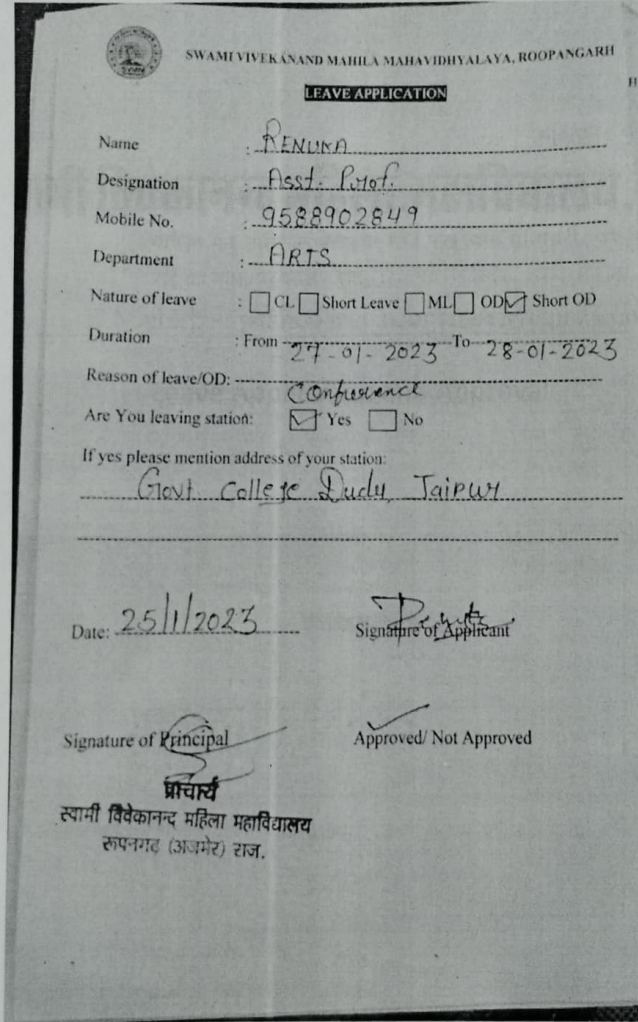 SWAMI VIVEKANAND MAHILA MAHAVIDHYALAYA, ROOPANGARH
LEAVE APPLICATION
Name : RENUKA
Designation : Asst. Prof.
Mobile No. : 9588902849
Department : ARTS
Nature of leave : ☐ CL ☐ Short Leave ☐ ML ☐ OD ☑ Short OD
Duration : From 27-01-2023 To 28-01-2023
Reason of leave/OD: Conference
Are You leaving station: ☑ Yes ☐ No
If yes please mention address of your station:
Govt. College Dudu, Jaipur
Date: 25/1/2023 Signature of Applicant
Signature of Principal Approved/ Not Approved
प्राचार्य
स्वामी विवेकानन्द महिला महाविद्यालय
रूपनगढ़ (अजमेर) राज.